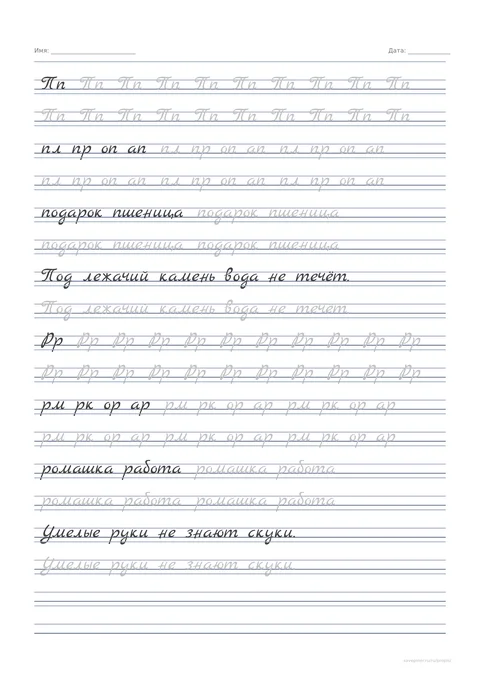 Имя: ____________ Дата: ______
Пп Пп Пп Пп Пп Пп Пп Пп Пп Пп
Пп Пп Пп Пп Пп Пп Пп Пп Пп Пп
пл пр оп ап пл пр оп ап пл пр оп ап
пл пр оп ап пл пр оп ап пл пр оп ап
подарок пшеница подарок пшеница
подарок пшеница подарок пшеница
Под лежачий камень вода не течёт.
Под лежачий камень вода не течёт
Рр Рр Рр Рр Рр Рр Рр Рр Рр Рр Рр
Рр Рр Рр Рр Рр Рр Рр Рр Рр Рр Рр
рм рк ор ар рм рк ор ар рм рк ор ар
рм рк ор ар рм рк ор ар рм рк ор ар
ромашка работа ромашка работа
ромашка работа ромашка работа
Умелые руки не знают скуки.
Умелые руки не знают скуки